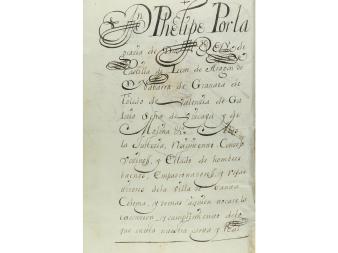 Dn Phelipe Por la
gracia de Dios Rey de
Castilla de Leon de Aragon de
Navarra de Granada de
Toledo de Valencia de Ga
licia Señor de Vizcaya y de
Molina &c
la Justicia, Rejimiento Concejo
Vecinos, y Estado de hombres
buenos, Empadronadores, y repar
tidores de la Villa de
y demas aquien tocare la
execucion, y cumplimiento de lo
que en esta nuestra carta y Real